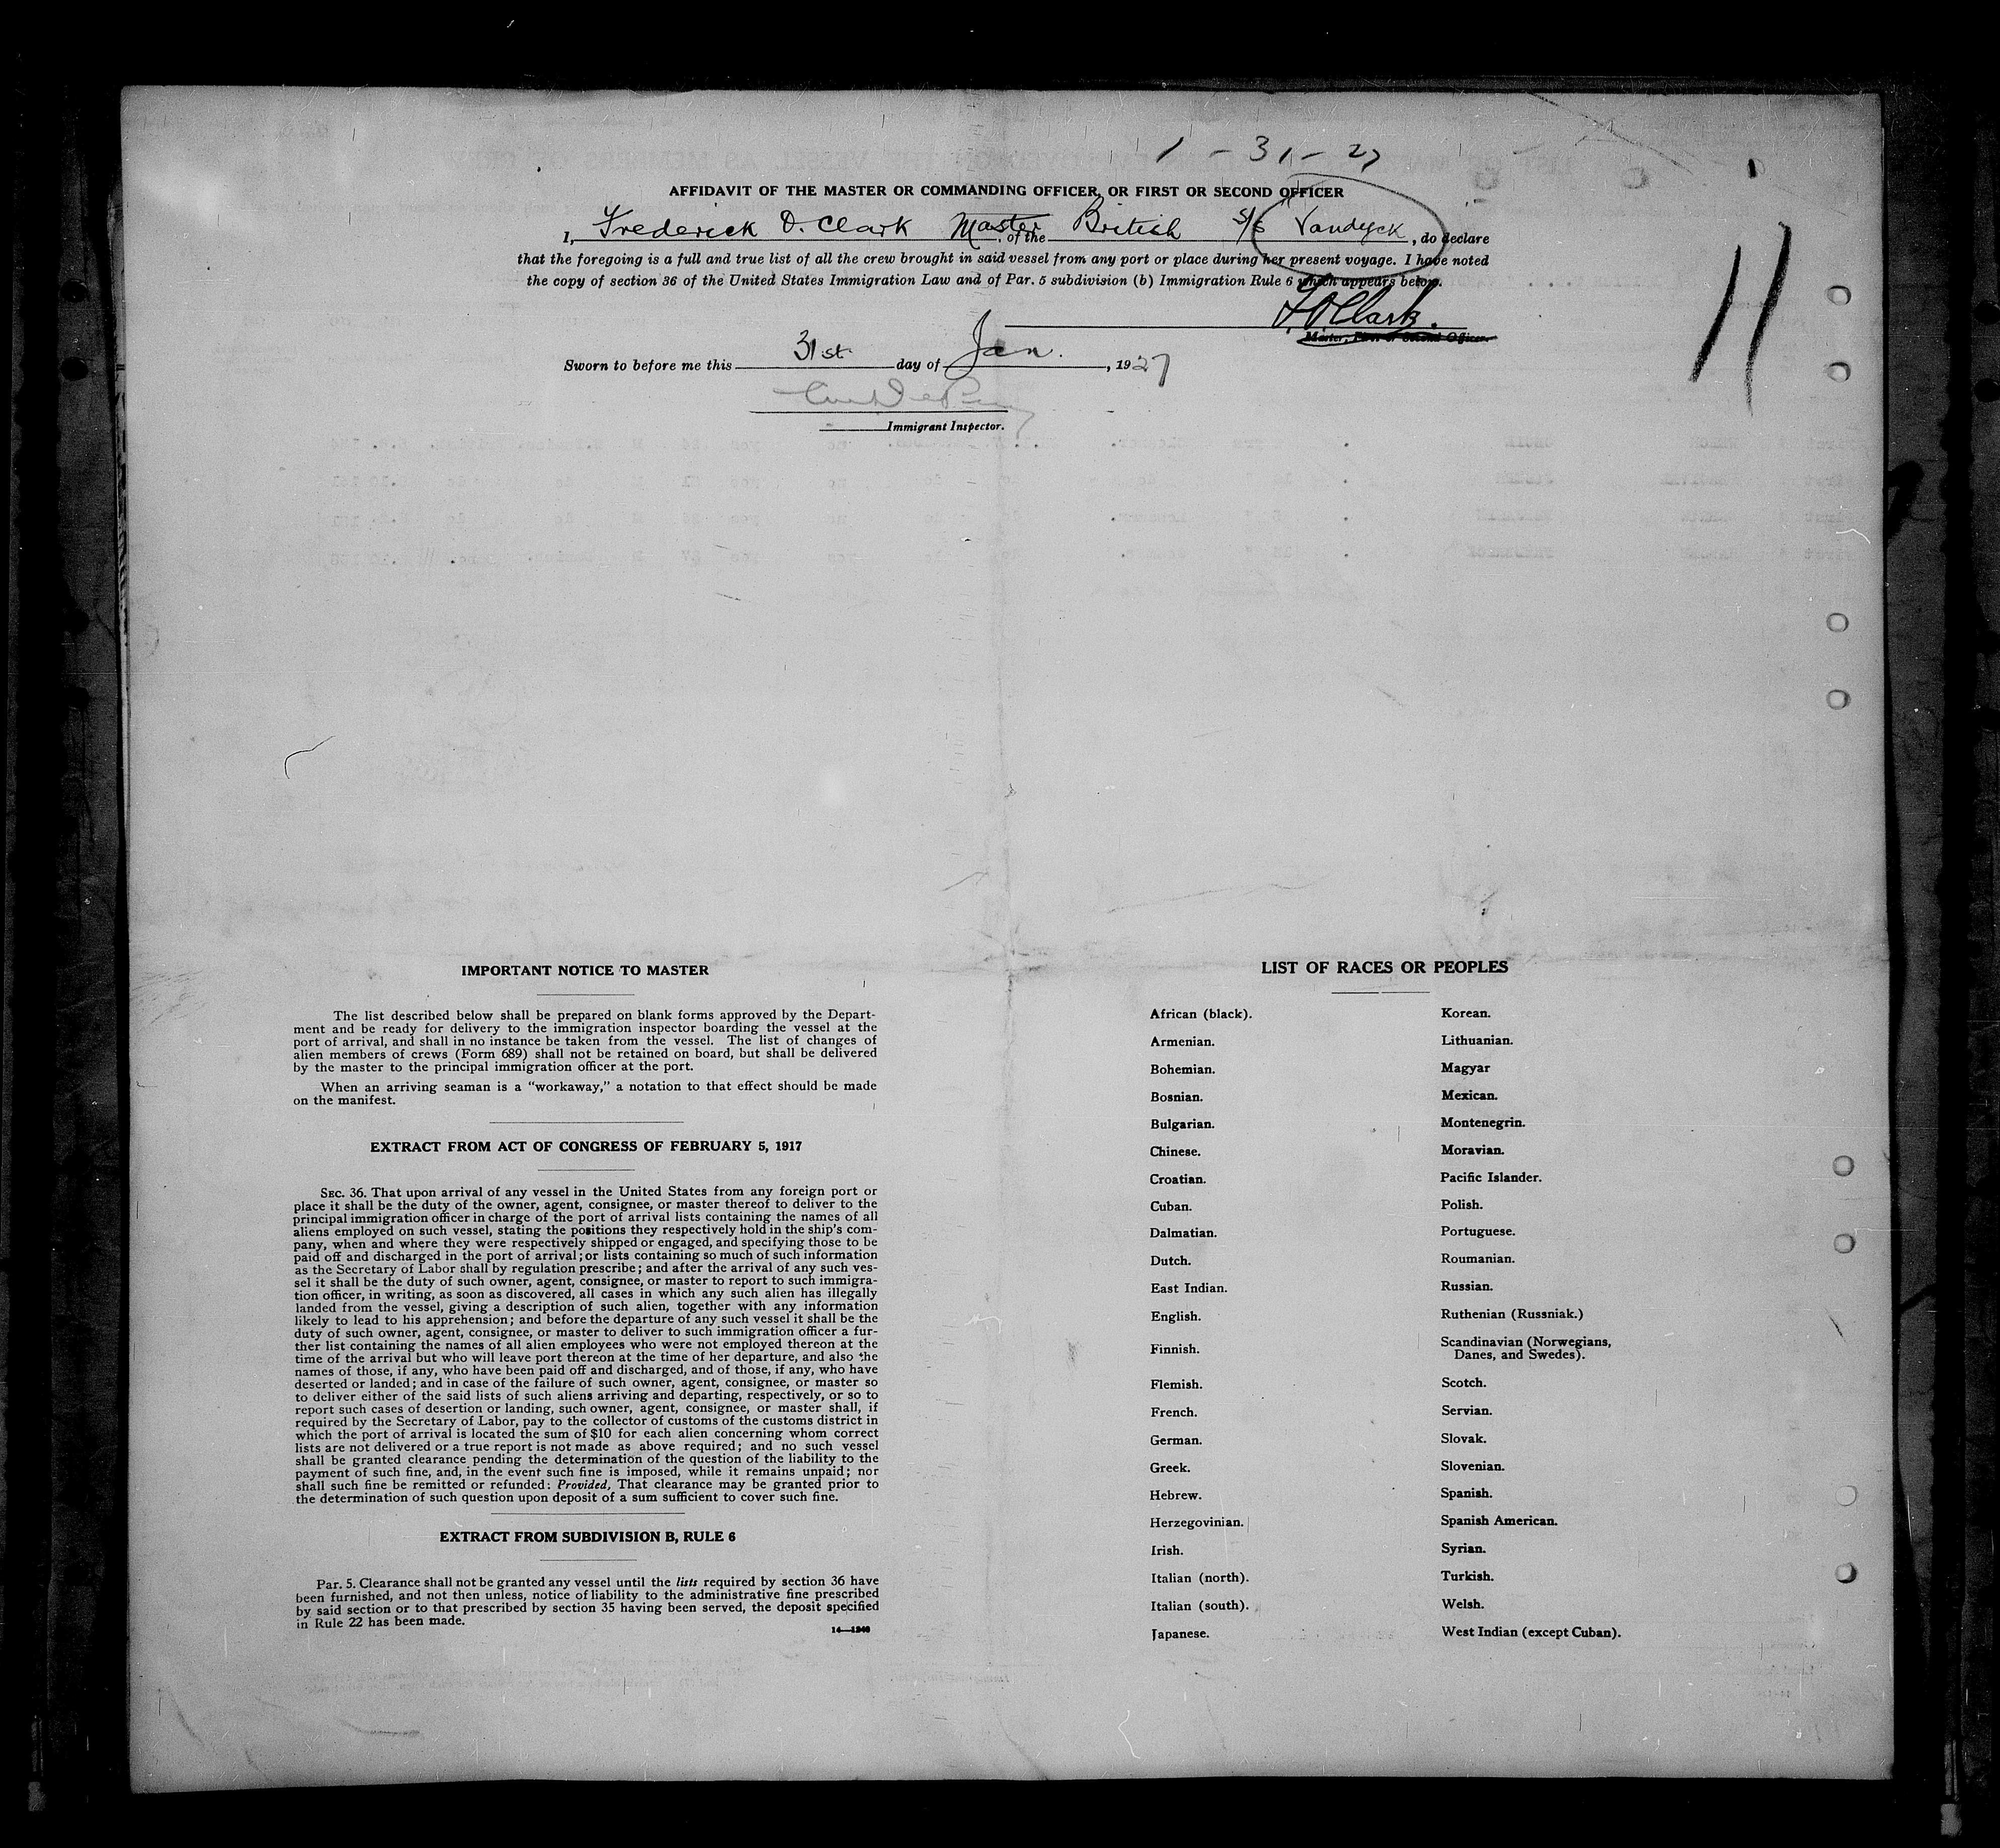 1 - 31 - 27
AFFIDAVIT OF THE MASTER OR COMMANDING OFFICER, OR FIRST OR SECOND OFFICER
I, Frederick O. Clark Master, of the British S/S Vandyck, do declare
that the foregoing is a full and true list of all the crew brought in said vessel from any port or place during her present voyage. I have noted
the copy of section 36 of the United States Immigration Law and of Par. 5 subdivision (b) Immigration Rule 6 which appears below.
11
F.O. Clark.
Master, First or Second Officer.
Sworn to before me this 31st day of Jan., 1927
Immigrant Inspector.
IMPORTANT NOTICE TO MASTER
The list described below shall be prepared on blank forms approved by the Depart-
ment and be ready for delivery to the immigration inspector boarding the vessel at the
port of arrival, and shall in no instance be taken from the vessel. The list of changes of
alien members of crews (Form 689) shall not be retained on board, but shall be delivered
by the master to the principal immigration officer at the port.
When an arriving seaman is a "workaway," a notation to that effect should be made
on the manifest.
EXTRACT FROM ACT OF CONGRESS OF FEBRUARY 5, 1917
SEC. 36. That upon arrival of any vessel in the United States from any foreign port or
place it shall be the duty of the owner, agent, consignee, or master thereof to deliver to the
principal immigration officer in charge of the port of arrival lists containing the names of all
aliens employed on such vessel, stating the positions they respectively hold in the ship's com-
pany, when and where they were respectively shipped or engaged, and specifying those to be
paid off and discharged in the port of arrival; or lists containing so much of such information
as the Secretary of Labor shall by regulation prescribe; and after the arrival of any such ves-
sel it shall be the duty of such owner, agent, consignee, or master to report to such immigra-
tion officer, in writing, as soon as discovered, all cases in which any such alien has illegally
landed from the vessel, giving a description of such alien, together with any information
likely to lead to his apprehension; and before the departure of any such vessel it shall be the
duty of such owner, agent, consignee, or master to deliver to such immigration officer a fur-
ther list containing the names of all alien employees who were not employed thereon at the
time of the arrival but who will leave port thereon at the time of her departure, and also the
names of those, if any, who have been paid off and discharged, and of those, if any, who have
deserted or landed; and in case of the failure of such owner, agent, consignee, or master so
to deliver either of the said lists of such aliens arriving and departing, respectively, or so to
report such cases of desertion or landing, such owner, agent, consignee, or master shall, if
required by the Secretary of Labor, pay to the collector of customs of the customs district in
which the port of arrival is located the sum of $10 for each alien concerning whom correct
lists are not delivered or a true report is not made as above required; and no such vessel
shall be granted clearance pending the determination of the question of the liability to the
payment of such fine, and, in the event such fine is imposed, while it remains unpaid; nor
shall such fine be remitted or refunded: Provided, That clearance may be granted prior to
the determination of such question upon deposit of a sum sufficient to cover such fine.
EXTRACT FROM SUBDIVISION B, RULE 6
Par. 5. Clearance shall not be granted any vessel until the lists required by section 36 have
been furnished, and not then unless, notice of liability to the administrative fine prescribed
by said section or to that prescribed by section 35 having been served, the deposit specified
in Rule 22 has been made.
14—1240
LIST OF RACES OR PEOPLES
African (black).
Armenian.
Bohemian.
Bosnian.
Bulgarian.
Chinese.
Croatian.
Cuban.
Dalmatian.
Dutch.
East Indian.
English.
Finnish.
Flemish.
French.
German.
Greek.
Hebrew.
Herzegovinian.
Irish.
Italian (north).
Italian (south).
Japanese.
Korean.
Lithuanian.
Magyar
Mexican.
Montenegrin.
Moravian.
Pacific Islander.
Polish.
Portuguese.
Roumanian.
Russian.
Ruthenian (Russniak.)
Scandinavian (Norwegians,
Danes, and Swedes).
Scotch.
Servian.
Slovak.
Slovenian.
Spanish.
Spanish American.
Syrian.
Turkish.
Welsh.
West Indian (except Cuban).